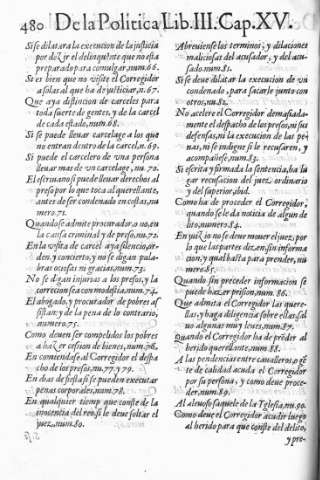 480 De la Politica Lib. III. Cap. XV.
Si se dilatara la execucion de la justicia
por dezir el delinquente que no esta
preparado para comulgar, num.66.
Si es bien que no visite el Corregidor
a solas al que ha de justiciar, n.67.
Que aya distincion de carceles para
toda suerte de gentes, y de la carcel
de cada estado, num.68.
Si se puede llevar carcelage a los que
no entran dentro de la carcel, n.69.
Si puede el carcelero de una persona
llevar mas de un carcelage, nu. 70.
El escrivano si puede llevar derechos al
preso por lo que toca al querellante,
antes de ser condenado en costas, nu
mero.71.
Quando se admite procurador a no, en
la causa criminal y de preso, n.72.
En la visita de carcel aya silencio, or-
den, y concierto, y no se digan pala-
bras ociosas ni gracias, num.73.
No se digan injurias a los presos, y la
correccion sea con modestia, num.74.
El abogado, y procurador de pobres as
sistan: y de la pena de lo contrario,
numero.75.
Como deven ser compelidos los pobres
a hazer cession de bienes, num.76.
En comiendase al Corregidor el despa
cho de los presos, nu.77.y 79.
En dias de fiesta si se pueden executar
penas corporales, num.78.
En qualquier tiempo que conste de la
inocencia del reo, si le deve soltar el
juez, num.80.
Abreviense los terminos, y dilaciones
maliciosas del acusador, y del acu-
sado, num.81.
Si se deve dilatar la execucion de un
condenado, para sacarle junto con
otros, nu.82.
No acelere el Corregidor demasiada-
mente el despacho de los presos, ni sus
defensas, ni la execucion de las pe-
nas, ni se indigne si le recusaren, y
acompañese, num.83.
Si escrita y firmada la sentencia, ha lu
gar recusacion del juez, ordinario
y del superior, ibid.
Como ha de proceder el Corregidor,
quando se le da noticia de algun de
lito, numero.84.
En juizio no se deve mover el juez, por
lo que las partes dizen, sin informa
cion, y qual ha para prender, nu-
mero.85.
Quando sin preceder informacion se
puede hazer prision, num. 86.
Que admita el Corregidor las quere-
llas, y haga diligencia sobre ellas, sal
vo algunas muy leves, num.87.
Quando el Corregidor ha de prēder al
herido querellante, num.88.
A las pendencias entre cavalleros, o gē
te de calidad acuda el Corregidor
por su persona, y como deve proce-
der, num.89.
Al alevoso saquele de la Yglesia, nu.90.
Como deve el Corregidor acudir luego
al herido para que conste del delito,
y pre-